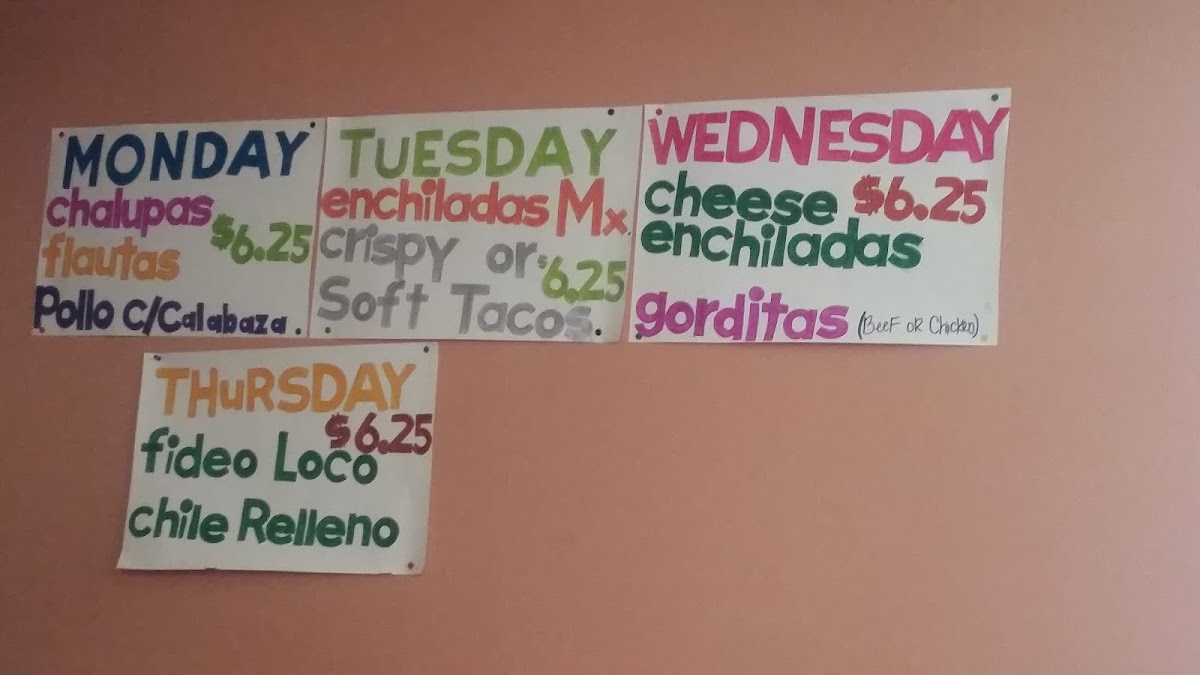 MONDAY
chalupas
$6.25
flautas
Pollo c/Calabaza
TUESDAY
enchiladas Mx.
crispy or
$6.25
Soft Tacos
WEDNESDAY
cheese $6.25
enchiladas
gorditas (Beef or Chicken)
THuRSDAY
$6.25
fideo Loco
chile Relleno